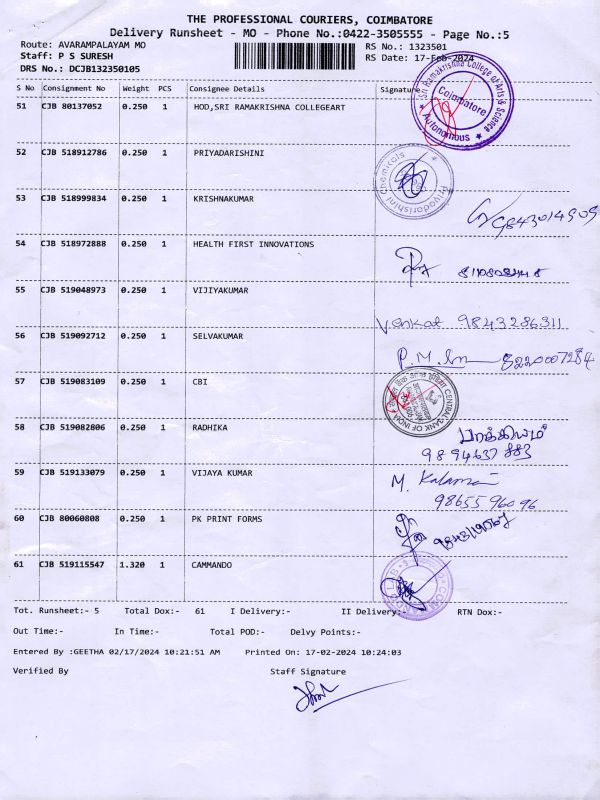 THE PROFESSIONAL COURIERS, COIMBATORE
Delivery Runsheet - MO - Phone No.:0422-3505555 - Page No.:5
Route: AVARAMPALAYAM MO
RS No.: 1323501
Staff: P S SURESH
RS Date: 17-Feb-2024
DRS No.: DCJB132350105
S No Consignment No Weight PCS Consignee Details Signature
51 CJB 80137052 0.250 1 HOD,SRI RAMAKRISHNA COLLEGEART
Sri Ramakrishna College of Arts & Science
Coimbatore
Autonomous
52 CJB 518912786 0.250 1 PRIYADARISHINI
Priyadarishini Chemicals
53 CJB 518999834 0.250 1 KRISHNAKUMAR
9843014909
54 CJB 518972888 0.250 1 HEALTH FIRST INNOVATIONS
55 CJB 519048973 0.250 1 VIJIYAKUMAR
Venkat 9843286311
56 CJB 519092712 0.250 1 SELVAKUMAR
P.M. 8220007284
57 CJB 519083109 0.250 1 CBI
CENTRAL BANK OF INDIA
58 CJB 519082806 0.250 1 RADHIKA
பாக்கியம்
9894637883
59 CJB 519133079 0.250 1 VIJAYA KUMAR
M. Kalamani
98655 96096
60 CJB 80060808 0.250 1 PK PRINT FORMS
61 CJB 519115547 1.320 1 CAMMANDO
Tot. Runsheet:- 5 Total Dox:- 61 I Delivery:- II Delivery:- RTN Dox:-
Out Time:- In Time:- Total POD:- Delvy Points:-
Entered By :GEETHA 02/17/2024 10:21:51 AM Printed On: 17-02-2024 10:24:03
Verified By Staff Signature